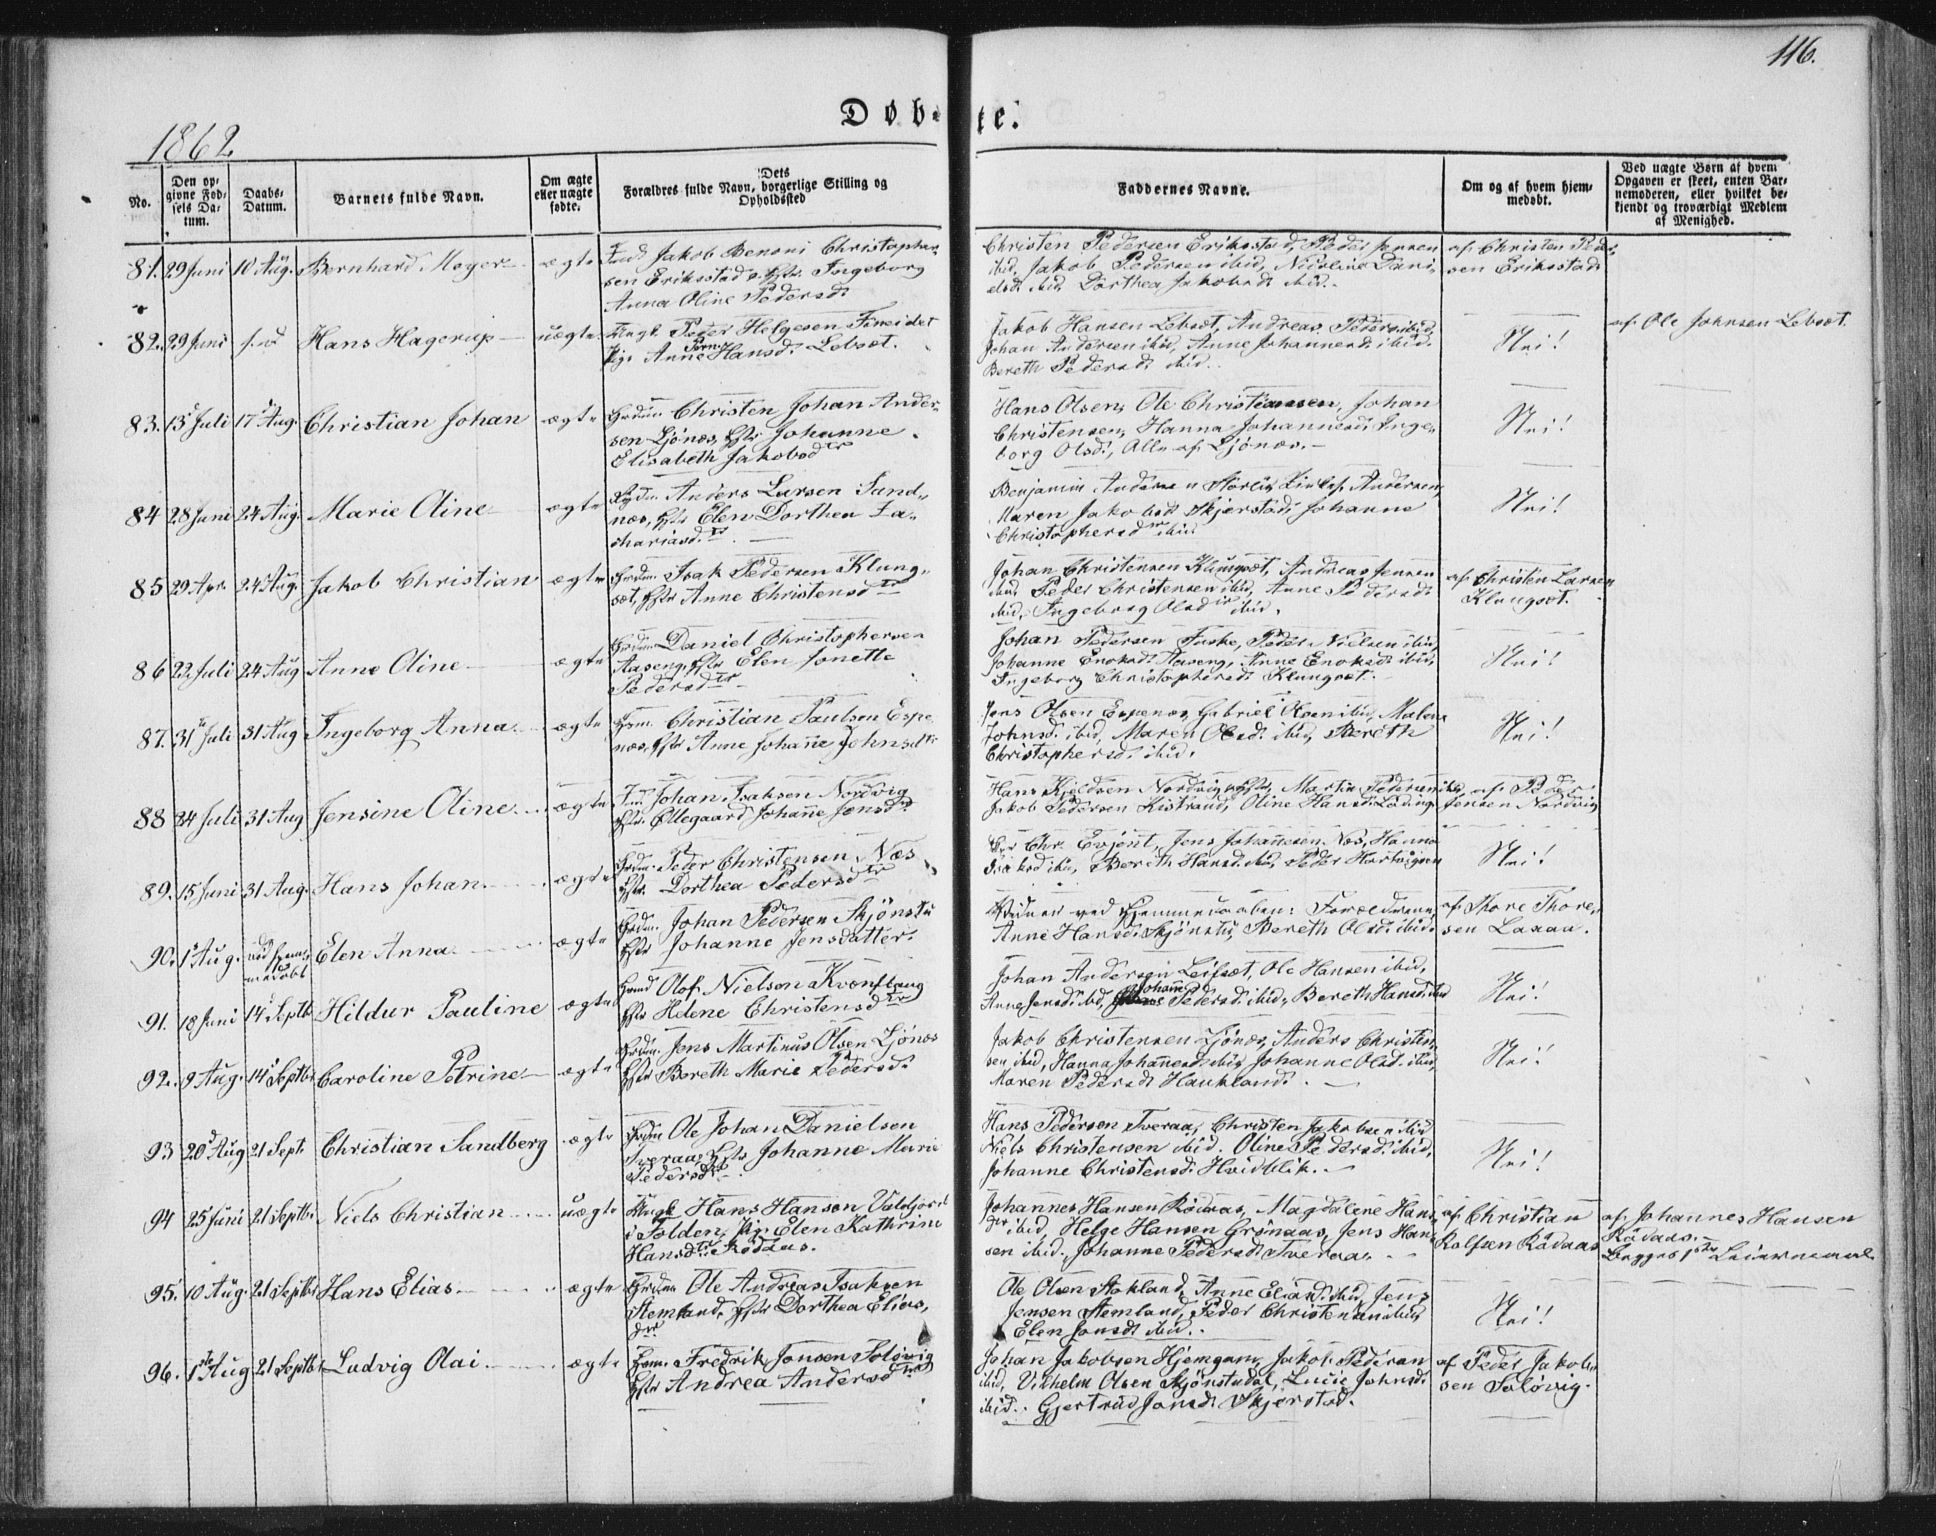 116.
Døbte.
1862
No.
Den opgivne Fødsels Datum.
Daabs-Datum.
Barnets fulde Navn.
Om ægte eller uægte fødte.
Dets Forældres fulde Navn, borgerlige Stilling og Opholdssted
Faddernes Navne.
Om og af hvem hjemmedøbt.
Ved uægte Børn af hvem Opgaven er skeet, enten Barnemoderen, eller hvilket bekjendt og troværdigt Medlem af Menighed.
81. 29 Juni 10 Aug. Bernhard Meyer ægte
Jakob Benoni Christopher-
sen Eriksstad Ingeborg
Anna Oline Pedersd.
Christen Pedersen Eriksstad, Peder Jensen
ibid, Jakob Pedersen ibid, Nicoline Dani-
elsd. ibid, Dorthea Jakobsd. ibid.
af Christen Peder-
sen Eriksstad
82. 29 Juni s.d. Hans Hagerup uægte
Ungk. Peder Helgesen Fineidet
Pige Anne Hansd. Lebsæt.
Jakob Hansen Lebsæt, Andreas Peders. ibid,
Johan Andersen ibid, Anne Johannesd. ibid.
Bereth Pedersd. ibid.
Nei!
af Ole Johnsen Lebsæt.
83. 13 Juli 17 Aug. Christian Johan ægte
Grdm. Christen Johan Ander-
sen Ljønæs, Hstr Johanne
Elisabeth Jakobsdtr
Hans Olsen, Ole Christiansen, Johan
Christensen, Hanna Johannesd. Inge-
borg Olsd., Alle af Ljønæs.
Nei!
84 28 Juni 24 Aug. Marie Oline ægte
Anders Larsen Sand-
næs, Hstr Elen Dorthea Za-
chariasd.tr
Benjamin Andersen Storli, Andersen,
Maren Jakobsd. Skjerstad, Johanne
Christophersdtr ibid
Nei!
85 29 Apr. 24 Aug. Jakob Christian ægte
Grdm. Isak Pedersen Klung-
sæt, Hstr Anne Christensdtr
Johan Christensen Klungsæt, Andreas Jensen
ibid, Peder Christensen ibid, Anne Pedersd.
ibid, Ingeborg Olsdtr ibid.
af Christen Larsen
Klungsæt.
86 22 Juli 24 Aug Anne Oline ægte
Grdm. Daniel Christophersen
Aaseng, Hstr Elen Jonette
Pedersdtr
Johan Pedersen Fuske, Peder Nielsen ibid,
Johanne Enoksd. Aaseng, Anne Enoksd. ibid,
Ingeborg Christophersd. Klungsæt.
Nei!
87. 31 Juli 31 Aug Ingeborg Anna ægte
Christian Paulsen Espe-
næs, Hstr Anne Johañe Johnsdtr
Jens Olsen Espenæs, Gabriel Olsen ibid, Malena
Johnsd. ibid, Maren Olsd. ibid, Bereth
Christophersd. ibid.
Nei!
88 24 Juli 31 Aug Jensine Oline ægte
Johan Isaksen Nordvig
Hstr Ellegaard Johañe Jensdr
Hans Kjeldsen Nordvig, Martin Pedersen ibid,
Jakob Pedersen Kistrand, Oline Hansd. Løding
af Peder
Jensen Nordvig
89. 15 Juni 31 Aug. Hans Johan ægte
Grdm. Peder Christensen Næs
Hstr Dorthea Pedersdtr
Chr. Evjent, Jens Johannesen Næs, Hanna
ibid, Bereth Hansd. ibid, Peder Hartvigsen
Nei!
90. 1 Aug. Elen Anna ægte
Grdm. Johan Pedersen Skjønstu
Hstr Johanne Jensdatter.
ved Hjemmedaaben: Forældrene,
Anne Hansd. Skjønstu, Bereth Olsd. ibid.
af Thore Thore-
sen Laaaa.
91. 18 Juni 14 Septbr Hildur Pauline ægte
Olof Nielson Kvenflaug
Hstr Helene Christensdtr
Johan Andersen Leifsæt, Ole Hansen ibid,
Anne Jensd. ibid, Johañe Pedersd. ibid, Bereth Hansd. ibid
Nei!
92. 9 Aug. 14 Septbr Caroline Petrine ægte
Grdm. Jens Martinus Olsen Ljönæs
Hstr Bereth Marie Pedersd.
Jakob Christensen Ljønæs, Anders Christen-
sen ibid, Hanna Johañesd. ibid, Johanne Olsd. ibid,
Maren Pedersd. Haukland.
Nei!
93 20 Aug 21 Sept. Christian Sandberg ægte
Grdm Ole Johan Danielsen
Tveraa, Hstr Johanne Marie
Pedersdtr
Hans Pedersen Tveraa, Christen Jakobsen ibid
Niels Christensen ibid. Oline Pedersd. ibid,
Johanne Christensd. Hvidblik.
Nei!
94 25 Juni 21 Septbr. Niels Christian uægte
Ungk Hans Hansen Valdjord
i Folden, Pige Elen Kathrine
Hansdtr Rødaas.
Johannes Hansen Rødaas, Magdalene Hans-
dtr ibid, Helge Hansen Grønaas, Jens Han-
sen ibid. Johanne Pedersd. Tveraa.
af Christian
Rolfsen Rådaas
af Johannes Hansen
Rådaas.
Begges 1ste Leiermaal
95. 10 Aug. 21 Septbr Hans Elias ægte
Grdm Ole Andreas Isaksen
Stemland, Hstr Dorthea Elias-
dtr
Ole Olsen Stokland, Anne Eliasd. ibid, Jens
Jensen Stemland, Peder Christensen ibid,
Elen Jonsd. ibid.
Nei!
96. 1ste Aug 21 Septbr Ludvig Olai ægte
Fredrik Jonsen Soløvig
Hstr Andrea Andersdtr
Johan Jakobsen Hjemgam, Jakob Pedersen
ibid, Vilhelm Olsen Skjønstudal, Lucie Johnsd.
ibid.. Gjertrud Jonsd. Skjerstad.
af Peder Jakob-
sen Soløvig.